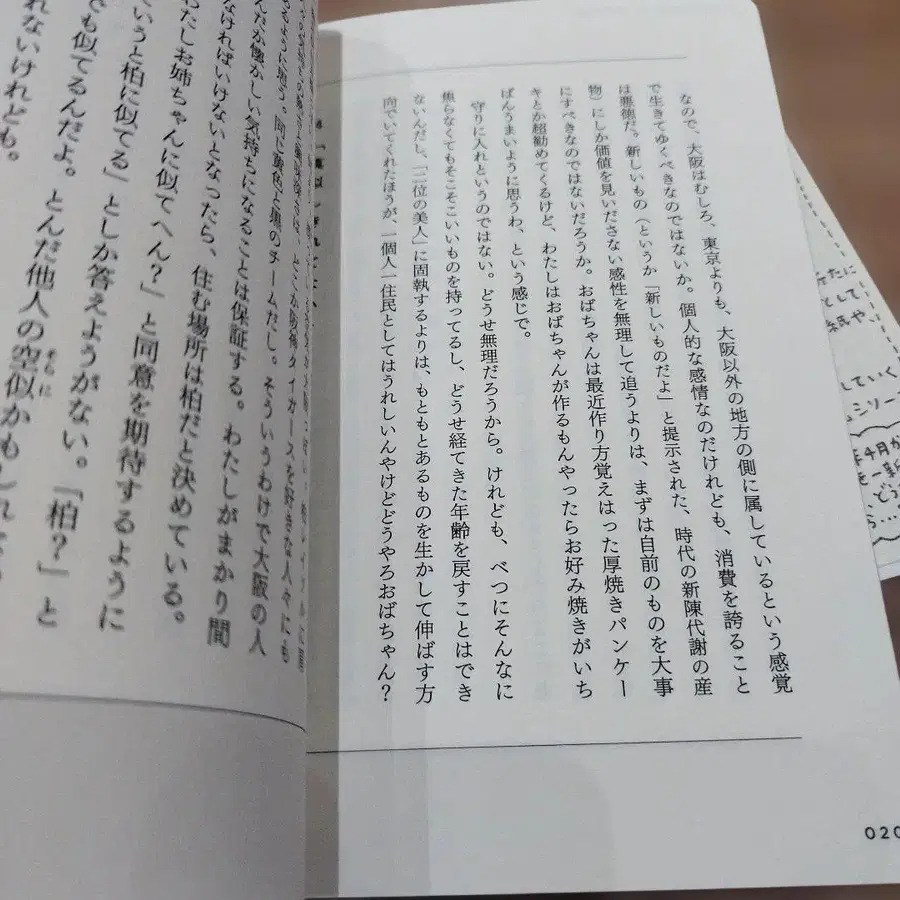 なので、大阪はむしろ、東京よりも、大阪以外の地方の側に属しているという感覚
で生きてゆくべきなのではないか。個人的な感情なのだけれども、消費を誇ること
は悪徳だ。新しいもの（というか「新しいものだよ」と提示された、時代の新陳代謝の産
物）にしか価値を見いださない感性を無理して追うよりは、まずは自前のものを大事
にすべきなのではないだろうか。おばちゃんは最近作り方覚えはった厚焼きパンケー
キとか超勧めてくるけど、わたしはおばちゃんが作るもんやったらお好み焼きがいち
ばんうまいように思うわ、という感じで。
守りに入れというのではない。どうせ無理だろうから。けれども、べつにそんなに
焦らなくてもそこそこいいものを持ってるし、どうせ経てきた年齢を戻すことはでき
ないんだし、「二位の美人」に固執するよりは、もともとあるものを生かして伸ばす方
向でいてくれたほうが、一個人一住民としてはうれしいんやけどどうやろおばちゃん？
020
タイガースを好きな人々にも
るように思う。同じ黄色と黒のチームだし。そういうわけで大阪の人
んだか懐かしい気持ちになることは保証する。わたしがまかり間
なければいけないとなったら、住む場所は柏だと決めている。
わたしお姉ちゃんに似てへん？」と同意を期待するように
いうと柏に似てる」としか答えようがない。「柏？」と
でも似てるんだよ。とんだ他人の空似かもしれ
れないけれども。
として
していく
年4月か